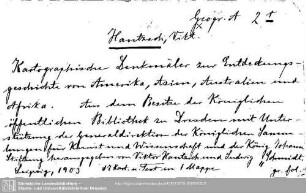 Geogr. A 2
Hantzsch, Vikt.
Kartographische Denkmäler zur Entdeckungs-
geschichte von Amerika, Asien, Australien und
Afrika. Aus dem Besitze der Königlichen
öffentlichen Bibliothek zu Dresden mit Unter-
stützung der Generaldirektion der Königlichen Samm-
lungen für Kunst und Wissenschaft und der König Johann
Stiftung herausgegeben von Viktor Hantzsch und Ludwig Schmidt.
Leipzig, 1903 u. Text in 1 Mappe gr. fol.